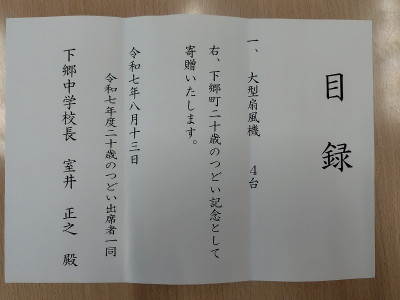 目録
一、大型扇風機 4台
右、下郷町二十歳のつどい記念として
寄贈いたします。
令和七年八月十三日
令和七年度二十歳のつどい出席者一同
下郷中学校長 室井 正之 殿